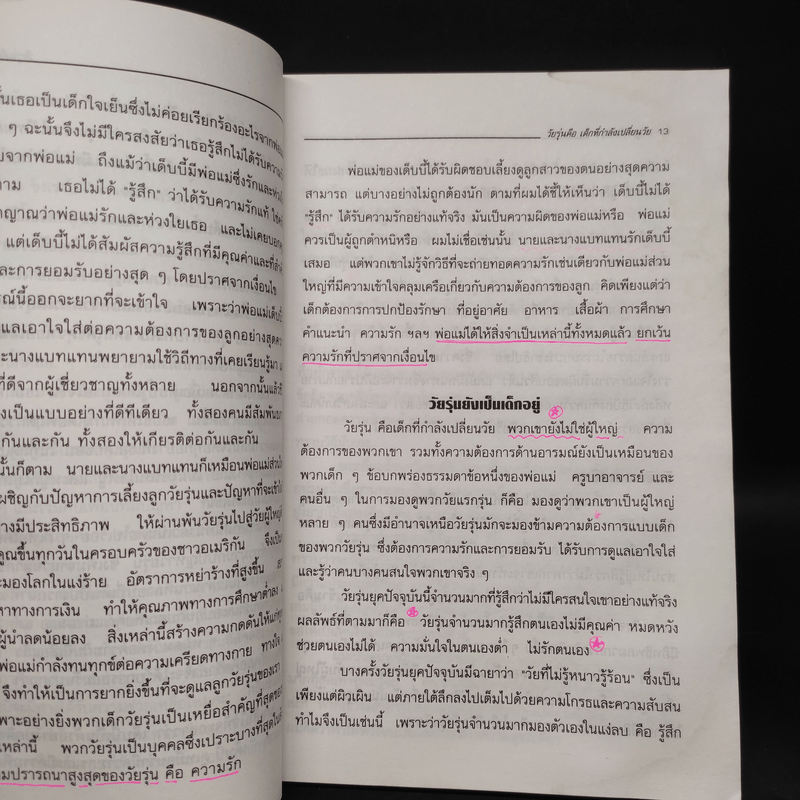 นั้นเธอเป็นเด็กใจเย็นซึ่งไม่ค่อยเรียกร้องอะไรจากพ่อแม่
ๆ ฉะนั้นจึงไม่มีใครสงสัยว่าเธอรู้สึกไม่ได้รับความ
จากพ่อแม่ ถึงแม้ว่าเด็บบี้มีพ่อแม่ซึ่งรักและห่วง
ตาม เธอไม่ได้ "รู้สึก" ว่าได้รับความรักแท้
ว่าพ่อแม่รักและห่วงใยเธอ และไม่เคยบอก
แต่เด็บบี้ไม่ได้สัมผัสความรู้สึกที่มีคุณค่าและที่
และการยอมรับอย่างสุด ๆ โดยปราศจากเงื่อนไข
นี้ออกจะยากที่จะเข้าใจ เพราะว่าพ่อแม่เด็บบี้
แลเอาใจใส่ต่อความต้องการของลูกอย่างสุดความ
และนางแบทแทนพยายามใช้วิถีทางที่เคยเรียนรู้มา
ที่ดีจากผู้เชี่ยวชาญทั้งหลาย นอกจากนั้นแล้ว
เป็นแบบอย่างที่ดีทีเดียว ทั้งสองคนมีสัมพันธ
กันและกัน ทั้งสองให้เกียรติต่อกันและกัน
นั้นก็ตาม นายและนางแบทแทนก็เหมือนพ่อแม่ส่วน
เผชิญกับปัญหาการเลี้ยงลูกวัยรุ่นและปัญหาที่จะ
มีประสิทธิภาพ ให้ผ่านพ้นวัยรุ่นไปสู่วัยผู้ใหญ่
คูณขึ้นทุกวันในครอบครัวของชาวอเมริกัน จึงเป็น
มองโลกในแง่ร้าย อัตราการหย่าร้างที่สูงขึ้น
ทางการเงิน ทำให้คุณภาพทางการศึกษาต่ำลง
ผู้นำลดน้อยลง สิ่งเหล่านี้สร้างความกดดันให้แก่
พ่อแม่กำลังทนทุกข์ต่อความเครียดทางกาย ทางใจ
จึงทำให้เป็นการยากยิ่งขึ้นที่จะดูแลลูกวัยรุ่นของเรา
เพราะอย่างยิ่งพวกเด็กวัยรุ่นเป็นเหยื่อสำคัญที่สุดของ
เหล่านี้ พวกวัยรุ่นเป็นบุคคลซึ่งเปราะบางที่สุดใน
ปรารถนาสูงสุดของวัยรุ่น คือ ความรัก
วัยรุ่นคือ เด็กที่กำลังเปลี่ยนวัย 13
พ่อแม่ของเด็บบี้ได้รับผิดชอบเลี้ยงดูลูกสาวของตนอย่างสุดความ
สามารถ แต่บางอย่างไม่ถูกต้องนัก ตามที่ผมได้ชี้ให้เห็นว่า เด็บบี้ไม่ได้
"รู้สึก" ได้รับความรักอย่างแท้จริง มันเป็นความผิดของพ่อแม่หรือ พ่อแม่
ควรเป็นผู้ถูกตำหนิหรือ ผมไม่เชื่อเช่นนั้น นายและนางแบทแทนรักเด็บบี้
เสมอ แต่พวกเขาไม่รู้จักวิธีที่จะถ่ายทอดความรักเช่นเดียวกับพ่อแม่ส่วน
ใหญ่ที่มีความเข้าใจคลุมเครือเกี่ยวกับความต้องการของลูก คิดเพียงแต่ว่า
เด็กต้องการการปกป้องรักษา ที่อยู่อาศัย อาหาร เสื้อผ้า การศึกษา
คำแนะนำ ความรัก ฯลฯ พ่อแม่ได้ให้สิ่งจำเป็นเหล่านี้ทั้งหมดแล้ว ยกเว้น
ความรักที่ปราศจากเงื่อนไข
วัยรุ่นยังเป็นเด็กอยู่
วัยรุ่น คือเด็กที่กำลังเปลี่ยนวัย พวกเขายังไม่ใช่ผู้ใหญ่ ความ
ต้องการของพวกเขา รวมทั้งความต้องการด้านอารมณ์ยังเป็นเหมือนของ
พวกเด็ก ๆ ข้อบกพร่องธรรมดาข้อหนึ่งของพ่อแม่ ครูบาอาจารย์ และ
คนอื่น ๆ ในการมองดูพวกวัยแรกรุ่น ก็คือ มองดูว่าพวกเขาเป็นผู้ใหญ่
หลาย ๆ คนซึ่งมีอำนาจเหนือวัยรุ่นมักจะมองข้ามความต้องการแบบเด็ก
ของพวกวัยรุ่น ซึ่งต้องการความรักและการยอมรับ ได้รับการดูแลเอาใจใส่
และรู้ว่าคนบางคนสนใจพวกเขาจริง ๆ
วัยรุ่นยุคปัจจุบันนี้จำนวนมากที่รู้สึกว่าไม่มีใครสนใจเขาอย่างแท้จริง
ผลลัพธ์ที่ตามมาก็คือ วัยรุ่นจำนวนมากรู้สึกตนเองไม่มีคุณค่า หมดหวัง
ช่วยตนเองไม่ได้ ความมั่นใจในตนเองต่ำ ไม่รักตนเอง
บางครั้งวัยรุ่นยุคปัจจุบันมีฉายาว่า "วัยที่ไม่รู้หนาวรู้ร้อน" ซึ่งเป็น
เพียงแต่ผิวเผิน แต่ภายใต้ลึกลงไปเต็มไปด้วยความโกรธและความสับสน
ทำไมจึงเป็นเช่นนี้ เพราะว่าวัยรุ่นจำนวนมากมองตัวเองในแง่ลบ คือ รู้สึก